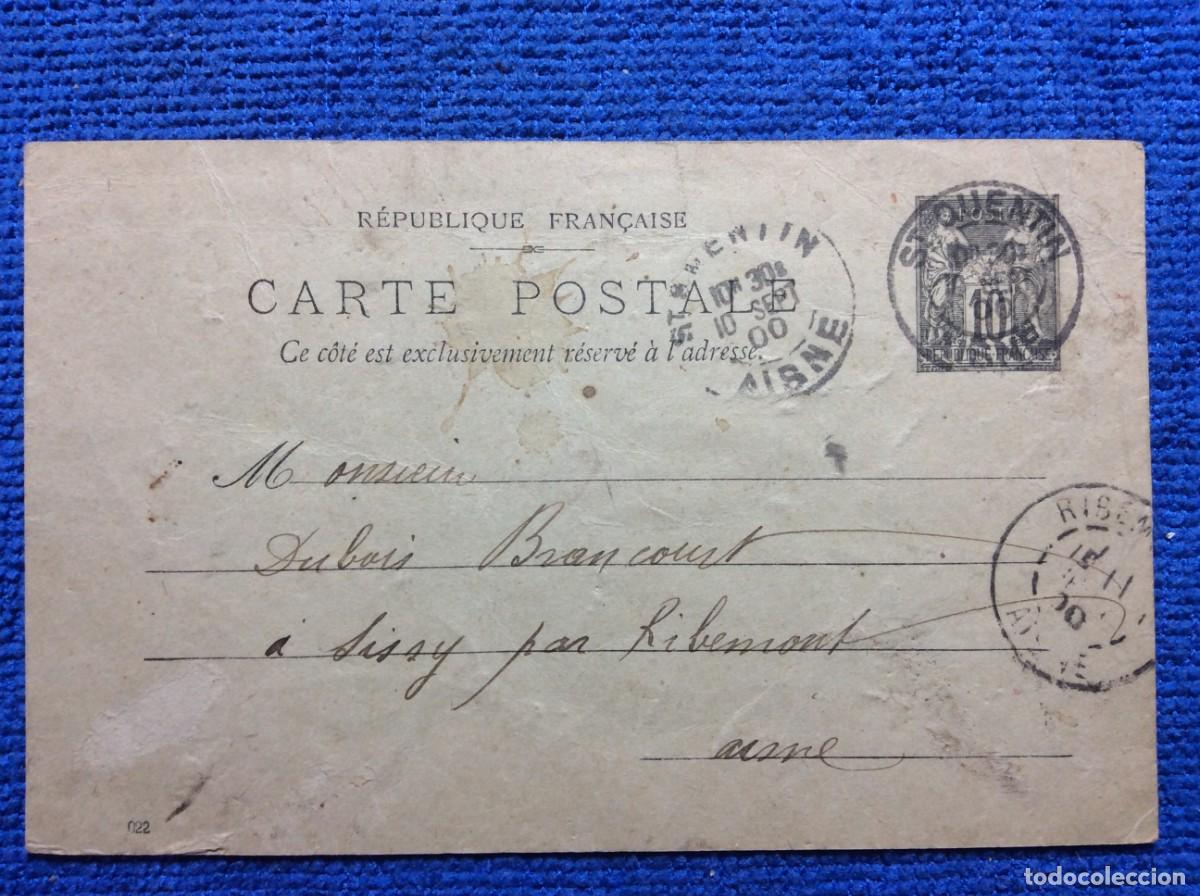 RÉPUBLIQUE FRANÇAISE
CARTE POSTALE
Ce côté est exclusivement réservé à l'adresse.
ST QUENTIN
10 30
10 SEPT
00
AISNE
ST QUENTIN
POSTES
10
RÉPUBLIQUE FRANÇAISE
Monsieur
Dubois Brancourt
à Sissy par Ribemont
aisne
RIBEM
11
00
022
todocoleccion